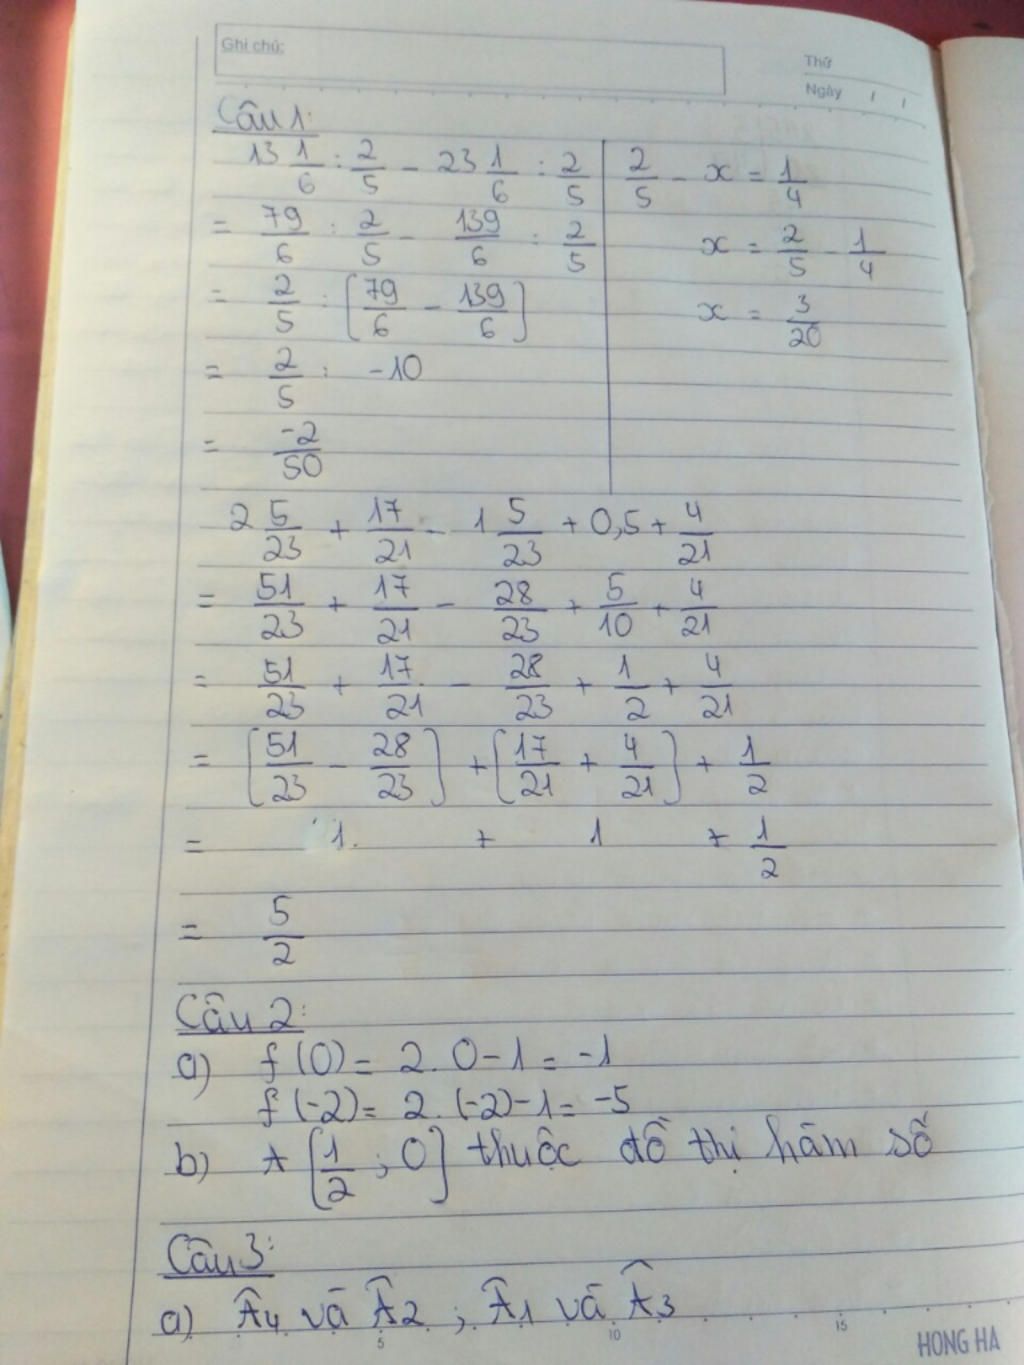 Ghi chú:
Thứ
Ngày / /
Câu 1:
13 1/6 : 2/5 - 23 1/6 : 2/5
= 79/6 : 2/5 - 139/6 : 2/5
= 2/5 : [79/6 - 139/6]
= 2/5 : -10
= -2/50
2/5 - x = 1/4
x = 2/5 - 1/4
x = 3/20
2 5/23 + 17/21 - 1 5/23 + 0,5 + 4/21
= 51/23 + 17/21 - 28/23 + 5/10 + 4/21
= 51/23 + 17/21 - 28/23 + 1/2 + 4/21
= [51/23 - 28/23] + [17/21 + 4/21] + 1/2
= 1 + 1 + 1/2
= 5/2
Câu 2:
a) f(0) = 2. 0 - 1 = -1
f(-2) = 2. (-2) - 1 = -5
b) A [1/2 ; 0] thuộc đồ thị hàm số
Câu 3:
a) Â4 và Â2 ; Â1 và Â3
5 10 15
HONG HA